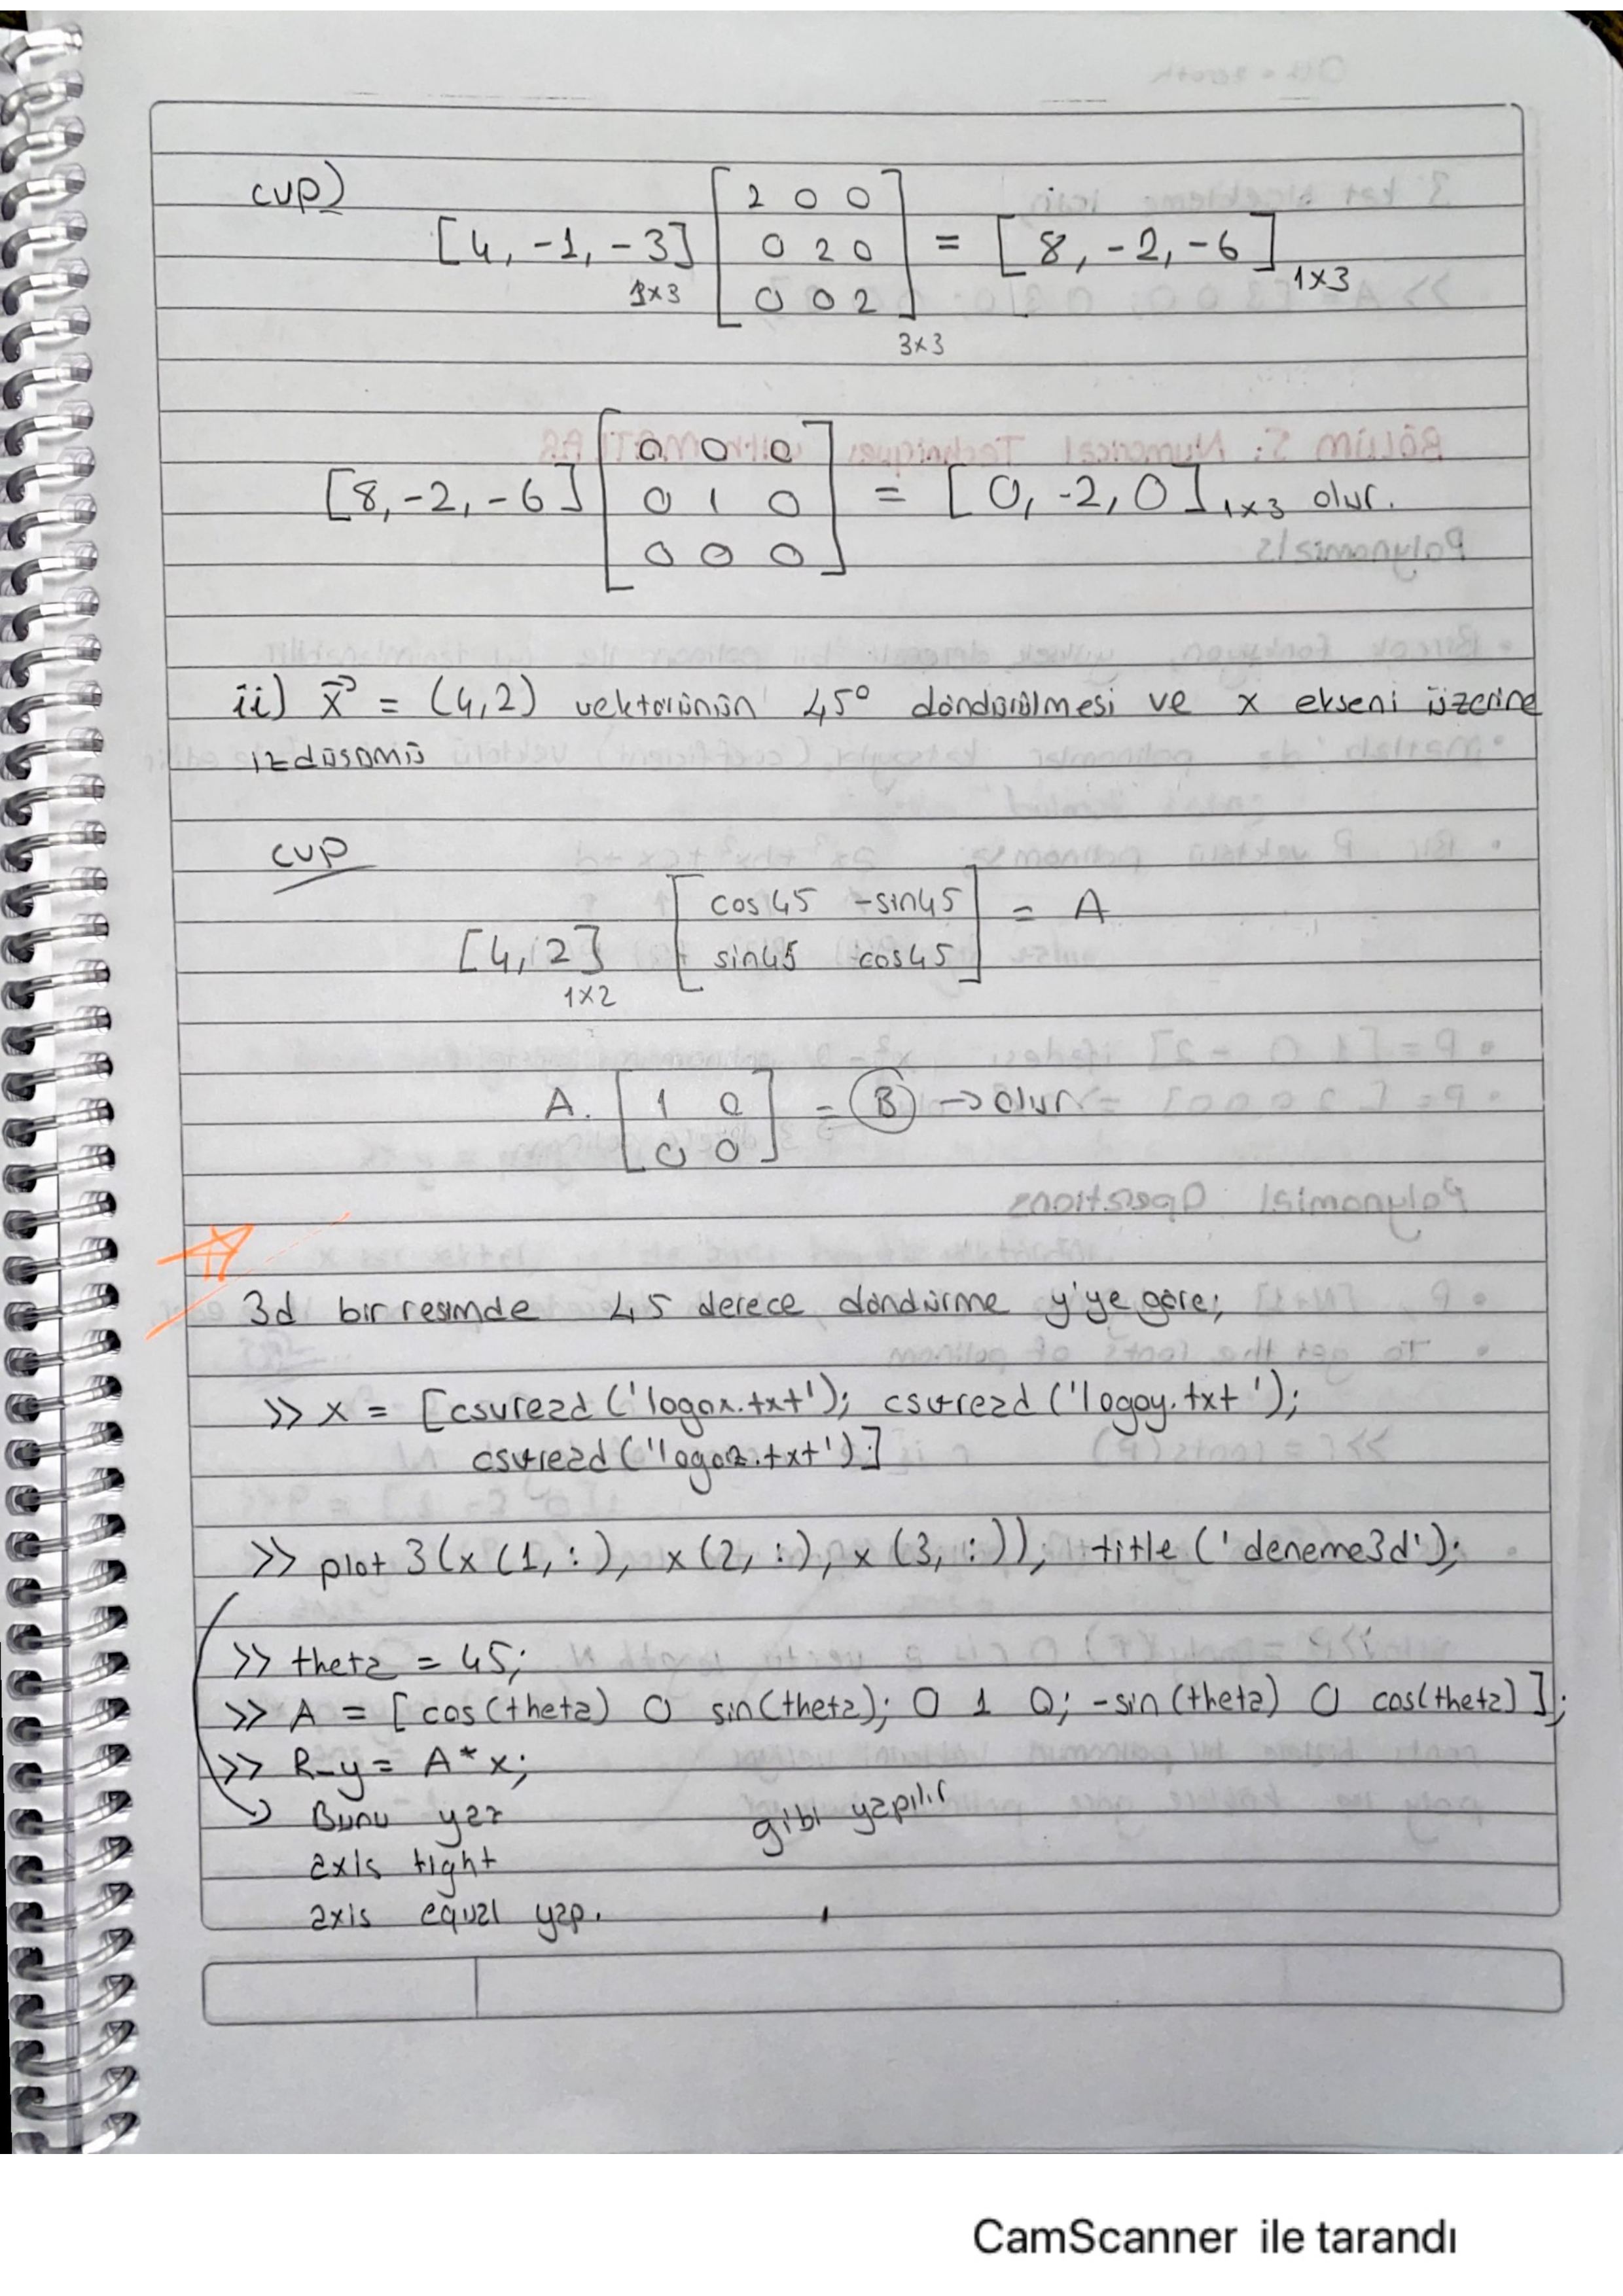 cvp)
[4, -1, -3] 1x3 [2 0 0; 0 2 0; 0 0 2] 3x3 = [8, -2, -6] 1x3
[8, -2, -6] [0 0 0; 0 1 0; 0 0 0] = [0, -2, 0] 1x3 olur.
ii) x⃗ = (4,2) vektörünün 45° döndürülmesi ve x ekseni üzerine
izdüşümü
cvp
[4, 2] 1x2 [cos45 -sin45; sin45 cos45] = A
A. [1 0; 0 0] = B → olur
3d bir resimde 45 derece döndürme y'ye göre;
>> x = [csvread('logox.txt'); csvread('logoy.txt');
csvread('logoz.txt')]
>> plot3(x(1,:), x(2,:), x(3,:)); title('deneme3d');
>> theta = 45;
>> A = [cos(theta) 0 sin(theta); 0 1 0; -sin(theta) 0 cos(theta)];
>> R_y = A*x;
Bunu yaz gibi yapılır
axis tight
axis equal yap.
CamScanner ile tarandı